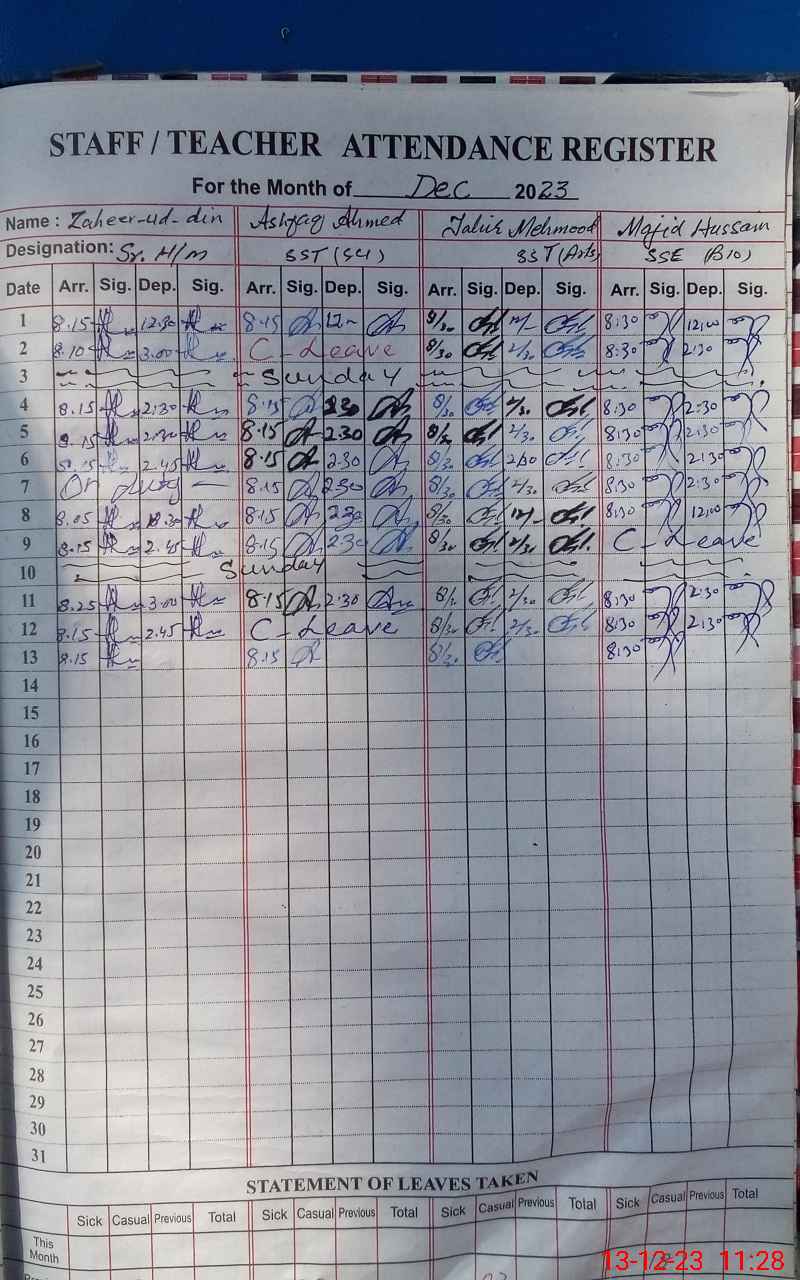 STAFF / TEACHER ATTENDANCE REGISTER
For the Month of Dec 2023
Name : Zaheer-ud-din Ashfaq Ahmed Tahir Mehmood Majid Hussain
Designation: Sr. H/m SST (Sci) SST (Arts) SSE (Bio)
Date Arr. Sig. Dep. Sig. Arr. Sig. Dep. Sig. Arr. Sig. Dep. Sig. Arr. Sig. Dep. Sig.
1 8.15 12.30 8.15 12 8/30 12/- 8:30 12:00
2 8.10 3.00 C - Leave 8/30 2/30 8:30 2:30
3 Sunday
4 8.15 2:30 8.15 2.30 8/30 2/30 8:30 2:30
5 8.15 2.30 8.15 2.30 8/30 2/30 8:30 2:30
6 8.15 2.45 8.15 2.30 8/30 2/30 8:30 2:30
7 On Duty - 8.15 2.30 8/30 2/30 8:30 2:30
8 8.05 8.15 8/30 12/- 8:30 12:00
9 8.15 2.45 8.15 2.30 8/30 2/30 C - Leave
10 Sunday
11 8.25 3.00 8.15 2.30 8/30 2/30 8:30 2:30
12 8.15 2.45 C - Leave 8/30 2/30 8:30 2:30
13 8.15 8.15 8/30 8:30
14
15
16
17
18
19
20
21
22
23
24
25
26
27
28
29
30
31
STATEMENT OF LEAVES TAKEN
Sick Casual Previous Total Sick Casual Previous Total Sick Casual Previous Total Sick Casual Previous Total
This
Month
13-12-23 11:28